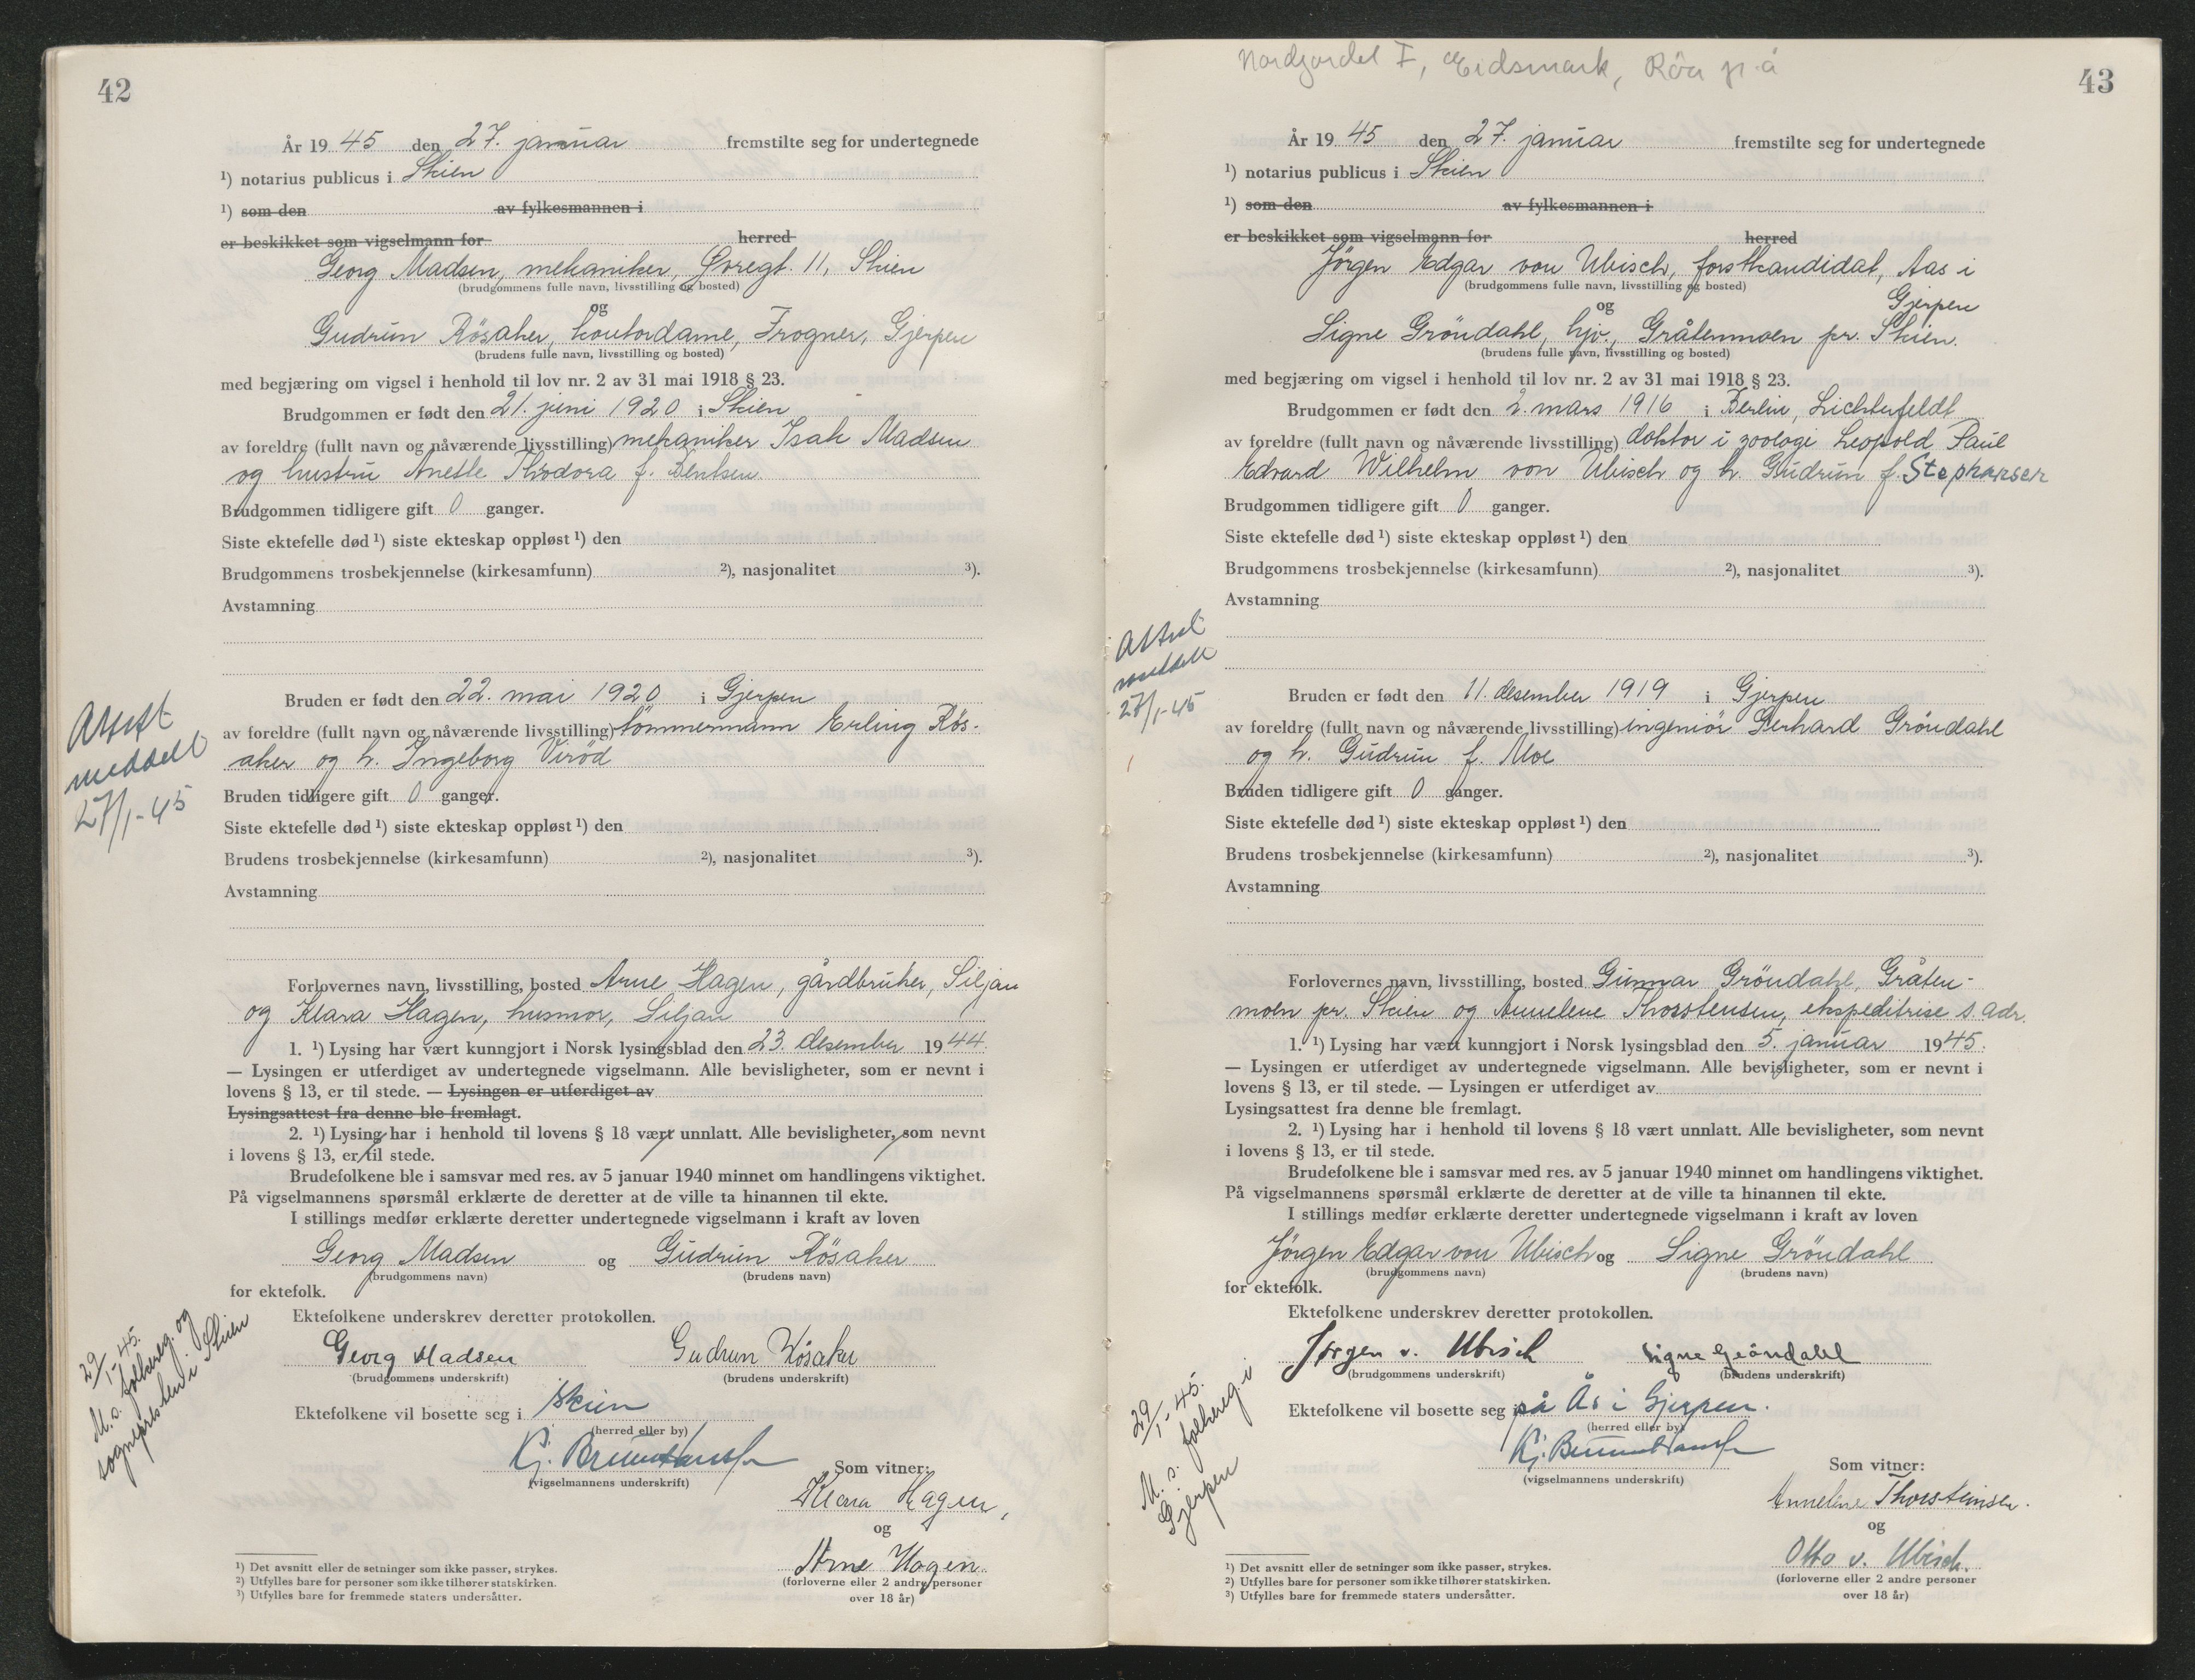 42
År 19 45 den 27. januar fremstilte seg for undertegnede
¹) notarius publicus i Skien
¹) som den av fylkesmannen i
er beskikket som vigselmann for herred
Georg Madsen, mekaniker, Øvregt. 11, Skien
(brudgommens fulle navn, livsstilling og bosted)
og
Gudrun Rösaker, kontordame, Frogner, Gjerpen
(brudens fulle navn, livsstilling og bosted)
med begjæring om vigsel i henhold til lov nr. 2 av 31 mai 1918 § 23.
Brudgommen er født den 21. juni 1920 i Skien
av foreldre (fullt navn og nåværende livsstilling) mekaniker Isak Madsen
og hustru Anette Thodora f. Bentsen
Brudgommen tidligere gift 0 ganger.
Siste ektefelle død ¹) siste ekteskap oppløst ¹) den
Brudgommens trosbekjennelse (kirkesamfunn) ²), nasjonalitet ³).
Avstamning
Attest
meddelt
27/1-45
Bruden er født den 22. mai 1920 i Gjerpen
av foreldre (fullt navn og nåværende livsstilling) tömmermann Erling Rös-
aker og h. Ingeborg Viröd
Bruden tidligere gift 0 ganger.
Siste ektefelle død ¹) siste ekteskap oppløst ¹) den
Brudens trosbekjennelse (kirkesamfunn) ²), nasjonalitet ³).
Avstamning
Forlovernes navn, livsstilling, bosted Arne Hagen, gårdbruker, Siljan
og Klara Hagen, husmor, Siljan
1. ¹) Lysing har vært kunngjort i Norsk lysingsblad den 23. desember 1944.
— Lysingen er utferdiget av undertegnede vigselmann. Alle bevisligheter, som er nevnt i
lovens § 13, er til stede. — Lysingen er utferdiget av
Lysingsattest fra denne ble fremlagt.
2. ¹) Lysing har i henhold til lovens § 18 vært unnlatt. Alle bevisligheter, som nevnt
i lovens § 13, er til stede.
Brudefolkene ble i samsvar med res. av 5 januar 1940 minnet om handlingens viktighet.
På vigselmannens spørsmål erklærte de deretter at de ville ta hinannen til ekte.
I stillings medfør erklærte deretter undertegnede vigselmann i kraft av loven
Georg Madsen og Gudrun Rösaker
(brudgommens navn) (brudens navn)
for ektefolk.
Ektefolkene underskrev deretter protokollen.
Georg Madsen Gudrun Rösaker
(brudgommens underskrift) (brudens underskrift)
29/1-45.
M. s. folkereg. og
sognepresten i Skien
Ektefolkene vil bosette seg i Skien
(herred eller by)
(vigselmannens underskrift)
Som vitner:
Klara Hagen,
og
Arne Hagen.
(forloverne eller 2 andre personer
over 18 år)
¹) Det avsnitt eller de setninger som ikke passer, strykes.
²) Utfylles bare for personer som ikke tilhører statskirken.
³) Utfylles bare for fremmede staters undersåtter.
Nordgardet I, Eidsmark, Röa p.å
43
År 19 45 den 27. januar fremstilte seg for undertegnede
¹) notarius publicus i Skien
¹) som den av fylkesmannen i
er beskikket som vigselmann for herred
Jörgen Edgar von Ubisch, forstkandidat, Aas i
Gjerpen
(brudgommens fulle navn, livsstilling og bosted)
og
Signe Gröndahl, hjv., Gråtenmoen pr. Skien.
(brudens fulle navn, livsstilling og bosted)
med begjæring om vigsel i henhold til lov nr. 2 av 31 mai 1918 § 23.
Brudgommen er født den 2. mars 1916 i Berlin, Lichterfeldt
av foreldre (fullt navn og nåværende livsstilling) doktor i zoologi Leopold Paul
Edvard Wilhelm von Ubisch og h. Gudrun f. Stephansen
Brudgommen tidligere gift 0 ganger.
Siste ektefelle død ¹) siste ekteskap oppløst ¹) den
Brudgommens trosbekjennelse (kirkesamfunn) ²), nasjonalitet ³).
Avstamning
Attest
meddelt
27/1-45
Bruden er født den 11. desember 1919 i Gjerpen
av foreldre (fullt navn og nåværende livsstilling) ingeniør Gerhard Gröndahl
og h. Gudrun f. Moe
Bruden tidligere gift 0 ganger.
Siste ektefelle død ¹) siste ekteskap oppløst ¹) den
Brudens trosbekjennelse (kirkesamfunn) ²), nasjonalitet ³).
Avstamning
Forlovernes navn, livsstilling, bosted Gunnar Gröndahl, Gråten-
moen pr. Skien og Annelene Thorstensen, ekspeditrise s. adr.
1. ¹) Lysing har vært kunngjort i Norsk lysingsblad den 5. januar 1945.
— Lysingen er utferdiget av undertegnede vigselmann. Alle bevisligheter, som er nevnt i
lovens § 13, er til stede. — Lysingen er utferdiget av
Lysingsattest fra denne ble fremlagt.
2. ¹) Lysing har i henhold til lovens § 18 vært unnlatt. Alle bevisligheter, som nevnt
i lovens § 13, er til stede.
Brudefolkene ble i samsvar med res. av 5 januar 1940 minnet om handlingens viktighet.
På vigselmannens spørsmål erklærte de deretter at de ville ta hinannen til ekte.
I stillings medfør erklærte deretter undertegnede vigselmann i kraft av loven
Jörgen Edgar von Ubisch og Signe Gröndahl
(brudgommens navn) (brudens navn)
for ektefolk.
Ektefolkene underskrev deretter protokollen.
Jørgen v. Ubisch Signe Gröndahl
(brudgommens underskrift) (brudens underskrift)
29/1-45.
M. s. folkereg. i
Gjerpen
Ektefolkene vil bosette seg på Ås i Gjerpen.
(herred eller by)
(vigselmannens underskrift)
Som vitner:
Annelene Thorsteinsen.
og
Otto v. Ubisch.
(forloverne eller 2 andre personer
over 18 år)
¹) Det avsnitt eller de setninger som ikke passer, strykes.
²) Utfylles bare for personer som ikke tilhører statskirken.
³) Utfylles bare for fremmede staters undersåtter.